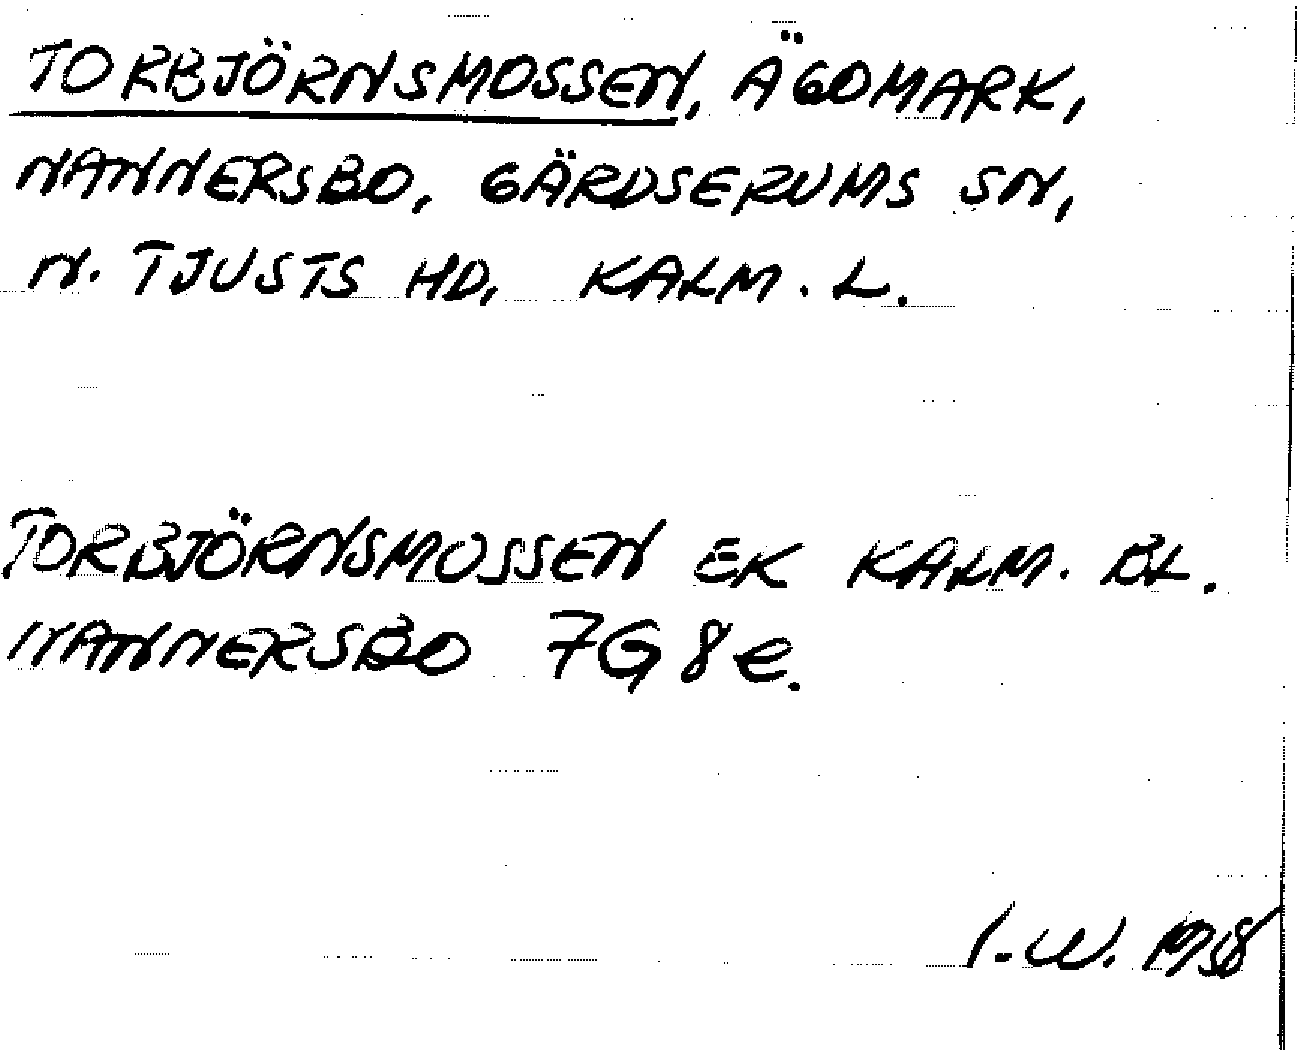 TORBJÖRNSMOSSEN, ÄGOMARK,
NANNERSBO, GÄRDSERUMS SN,
N. TJUSTS HD, KALM. L.
TORBJÖRNSMOSSEN EK KALM. BL.
NANNERSBO 7G 8e.
I.W.